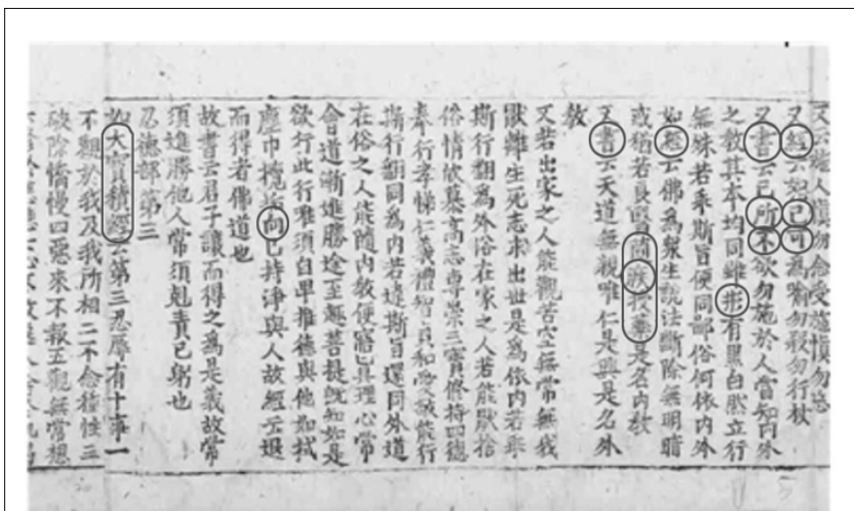 又云諸人慎勿念受施慎勿忘
又經云如己可為喻勿殺勿行杖
又書云己所不欲勿施於人當知內外
之教其本均同雖形有黑白然立行
無殊若乖斯旨便同鄙俗何依內外
如經云佛為眾生說法斷除無明暗
或猶若良醫隨疾授藥是名內教
又書云天道無親唯仁是與是名外
教
又若出家之人能觀苦空無常無我
厭離生死志求出世是為依內若乖
斯行翻為外俗在家之人若能厭捨
俗情欣慕高志專崇三寶修持四德
奉行孝悌仁義禮智貞和愛敬能行
斯行翻同為內若違斯旨還同外道
在俗之人能隨內教便寤真理心常
會道漸進勝途至趣菩提既知如是
欲行此行唯須自卑推德與他如拭
塵巾攬垢向己持淨與人故經云退
而得者佛道也
故書云君子讓而得之為是義故常
須進勝他人常須剋責己躬也
忍德部第三
如大寶積經云第三忍辱有十事一
不觀於我及我所相二不念種性三
破除憍慢四惡來不報五觀無常想